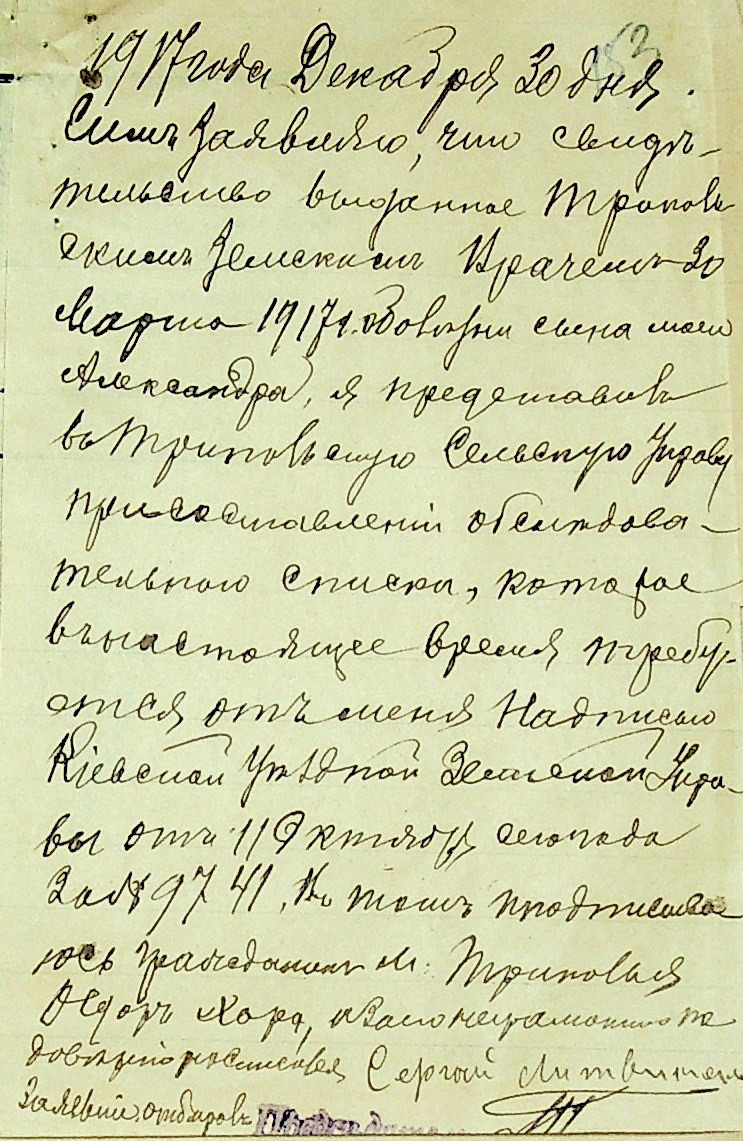 153
1917 года Декабря 30 дня.
Симъ Заявляю, что свидѣ-
тельство выданное Триполь
скимъ Земскимъ Врачемъ 30
Марта 1917 г. о болѣзни сына моего
Александра, я представилъ
въ Трипольскую Сельскую Управу
при составленіи обслѣдова-
тельного списка, которое
въ настоящее время требу-
ется отъ меня Надписью
Кіевской Уѣздной Земской Упра-
вы отъ 11 Октября сего года
За № 9741, въ томъ и подписыва
юсь гражданинъ м. Триполья
Федоръ, а за него неграмотного по
довѣрію росписался Сергѣй Литвиненко
Заявленіе отбиралъ